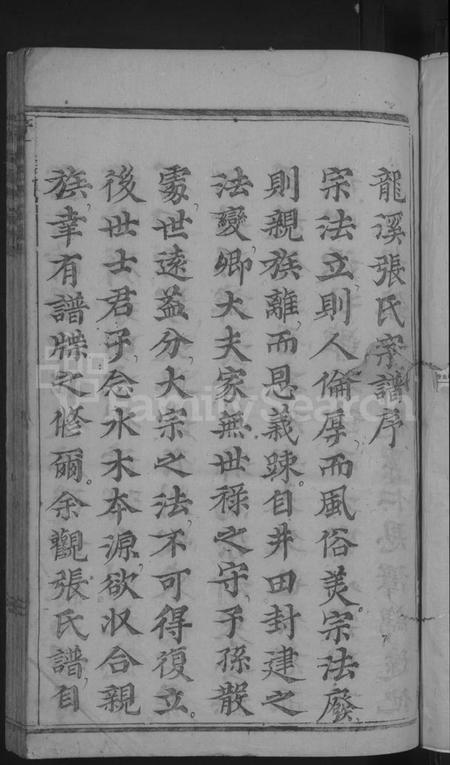 龍溪張氏宗譜序
宗法立則人倫厚而風俗美宗法廢
則親族離而恩義踈自井田封建之
法變卿大夫家無世祿之守子孫散
處世遠益分大宗之法不可得復立
後世士君子念水木本源欲收合親
族幸有譜牒之修爾余觀張氏譜自
FamilySearch